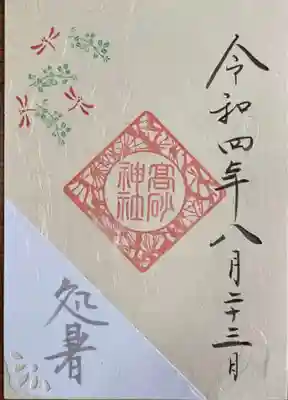 令和四年八月二十三日
高砂
神社
処暑